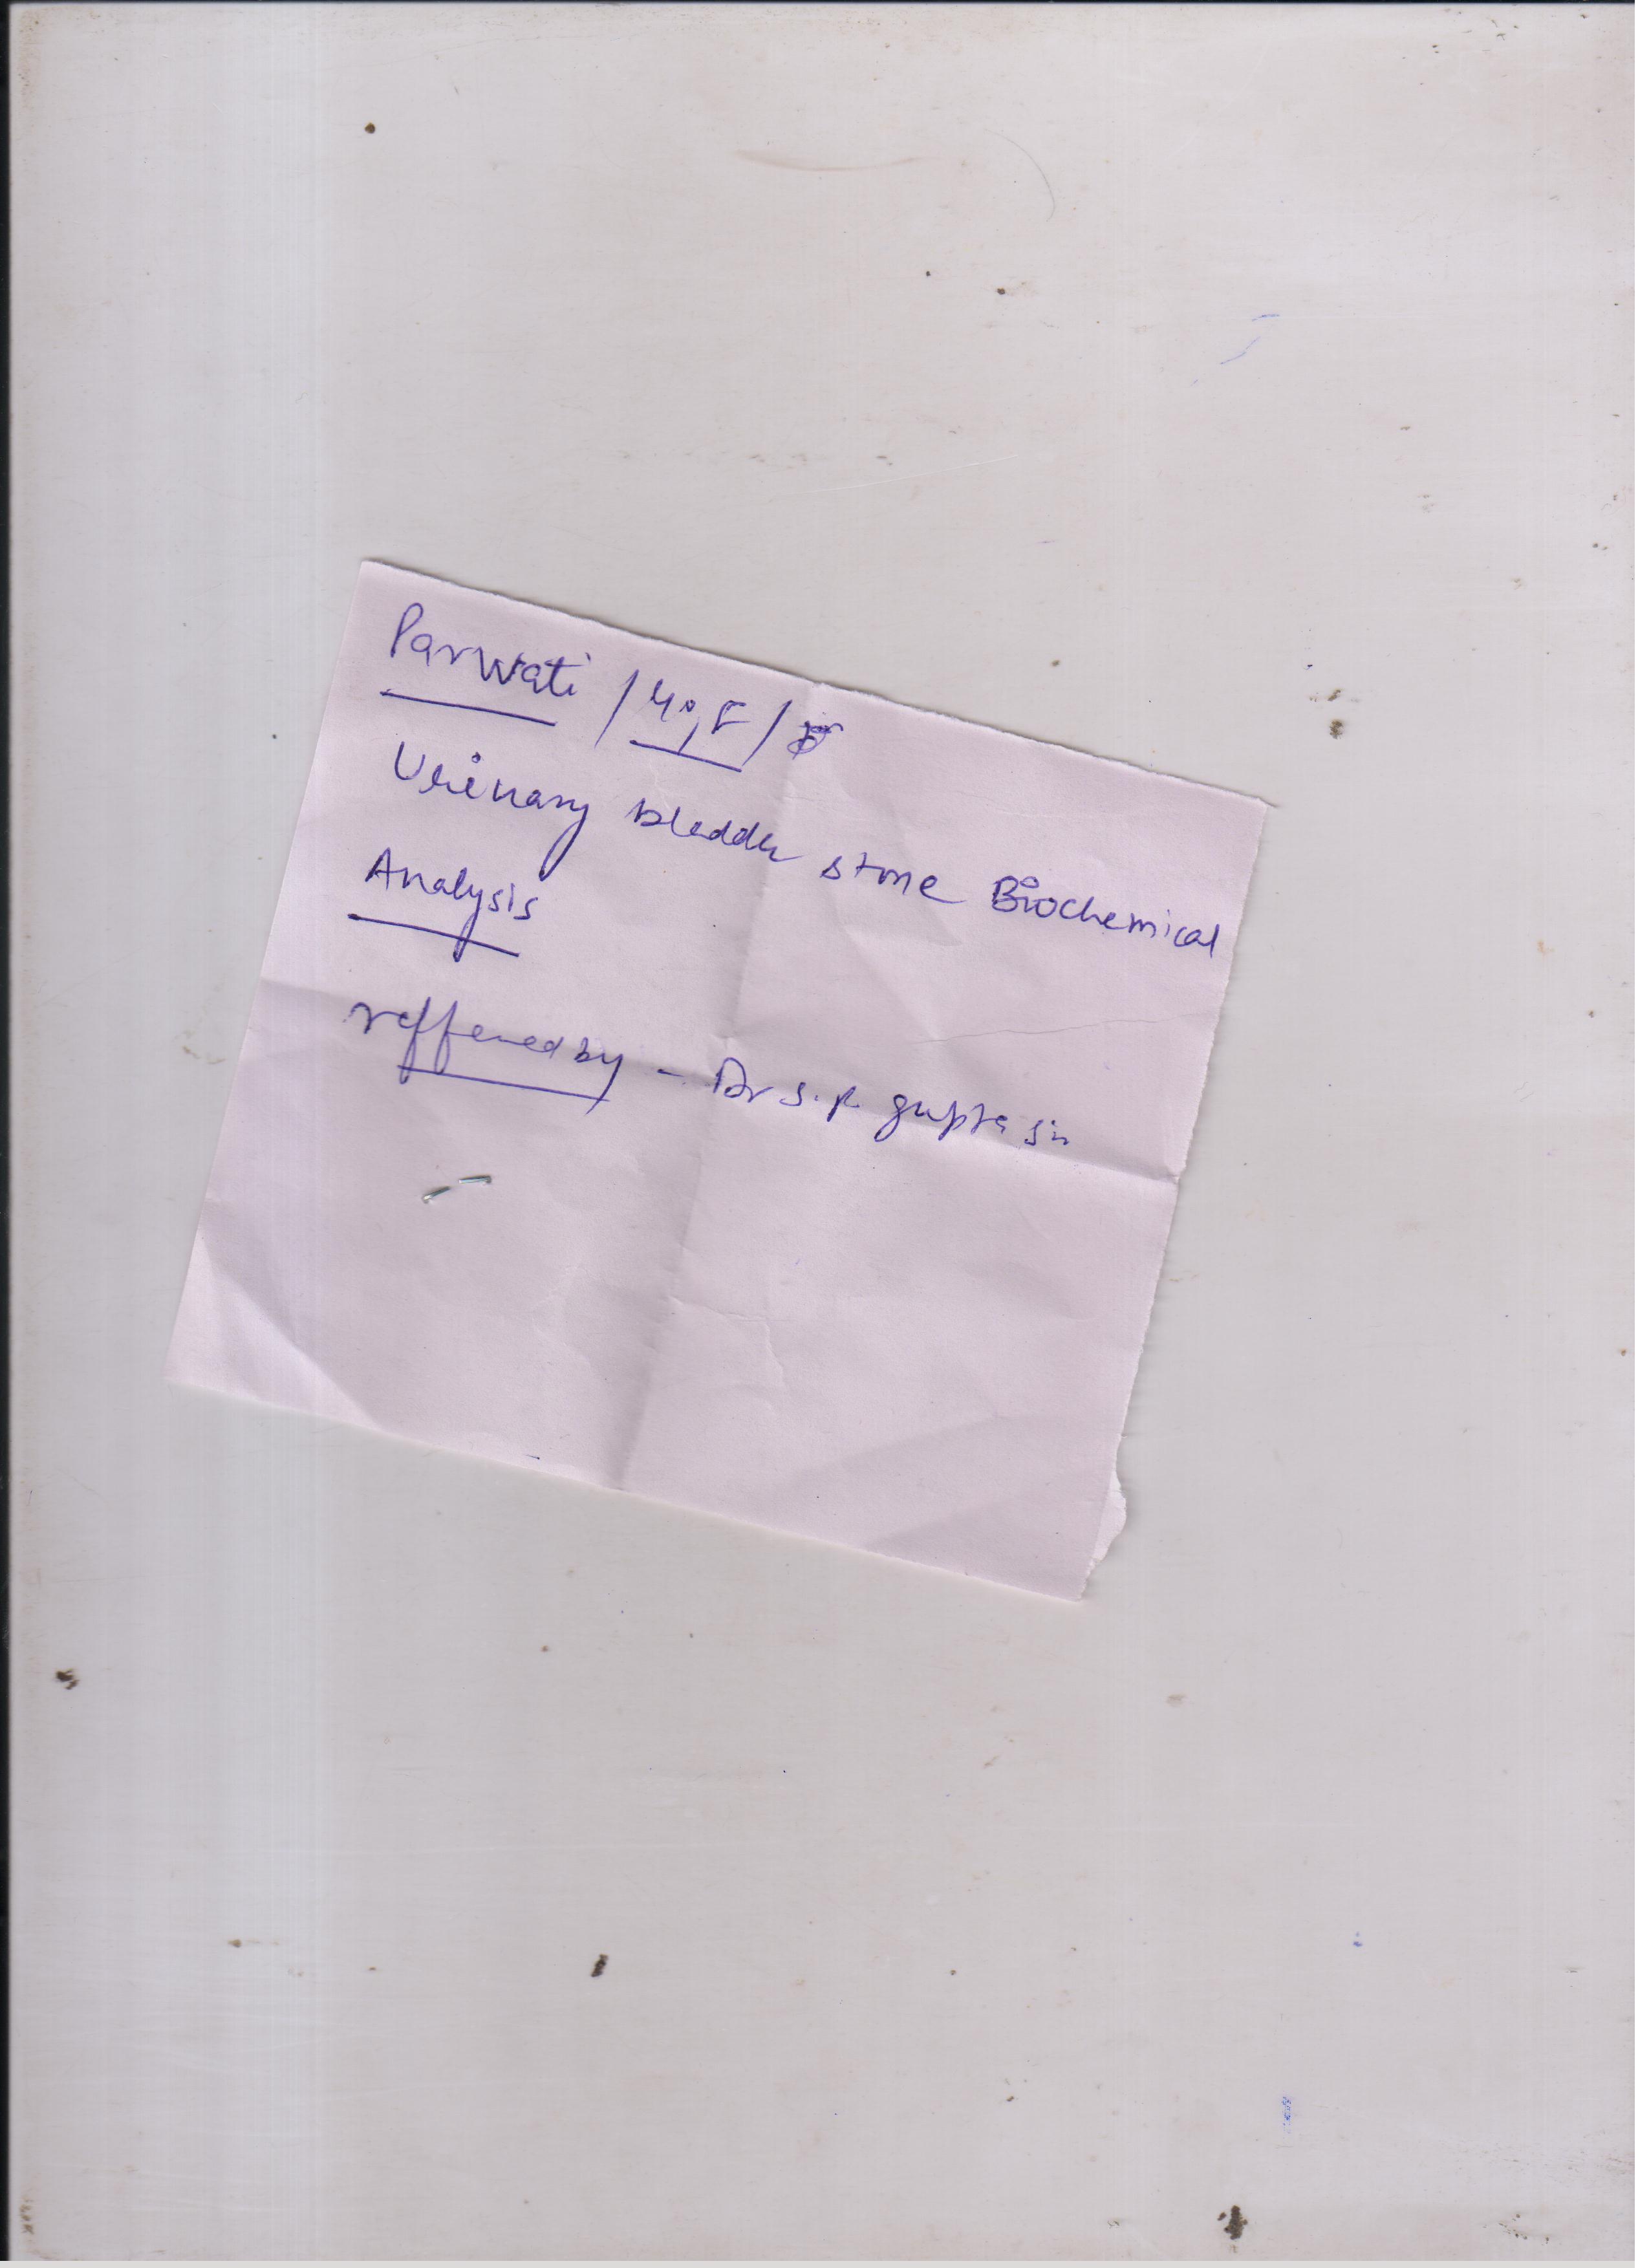 Parwati / 40, F /
Urinary bladder stone Biochemical
Analysis
reffered by - Dr S.P gupta sir